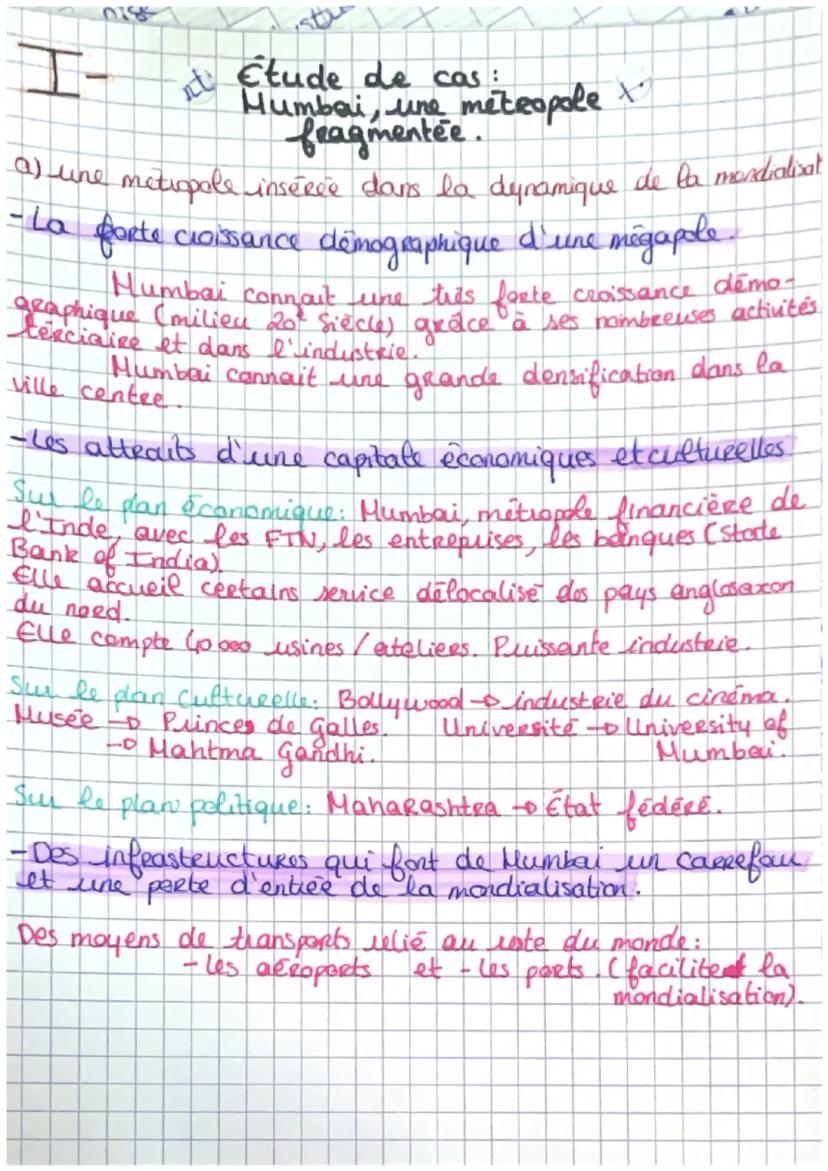 I-
Étude de cas :
Mumbai, une métropole
fragmentée.
a) une métropole insérée dans la dynamique de la mondialisat
- La forte croissance démographique d'une mégapole.
Mumbai connait une très forte croissance démo-
graphique (milieu 20e Siècle) grâce à ses nombreuses activités
terciaire et dans l'industrie.
Mumbai connait une grande densification dans la
ville centre.
- Les attraits d'une capitale économiques et culturelles
Sur le plan économique : Mumbai, métropole financière de
l'Inde, avec les FTN, les entreprises, les banques (State
Bank of India)
Elle accueil certains service délocalisé des pays anglosaxon
du nord.
Elle compte 40 000 usines / ateliers. Puissante industrie.
Sur le plan culturelle : Bollywood → industrie du cinéma.
Musée → Princes de Galles. Université → University of
→ Mahtma Gandhi. Mumbai.
Sur le plan politique : Maharashtra → État fédéré.
- Des infrastructures qui font de Mumbai un carrefour
et une porte d'entrée de la mondialisation.
Des moyens de transports relié au reste du monde :
- les aéroports et - les ports. (facilitent la
mondialisation).